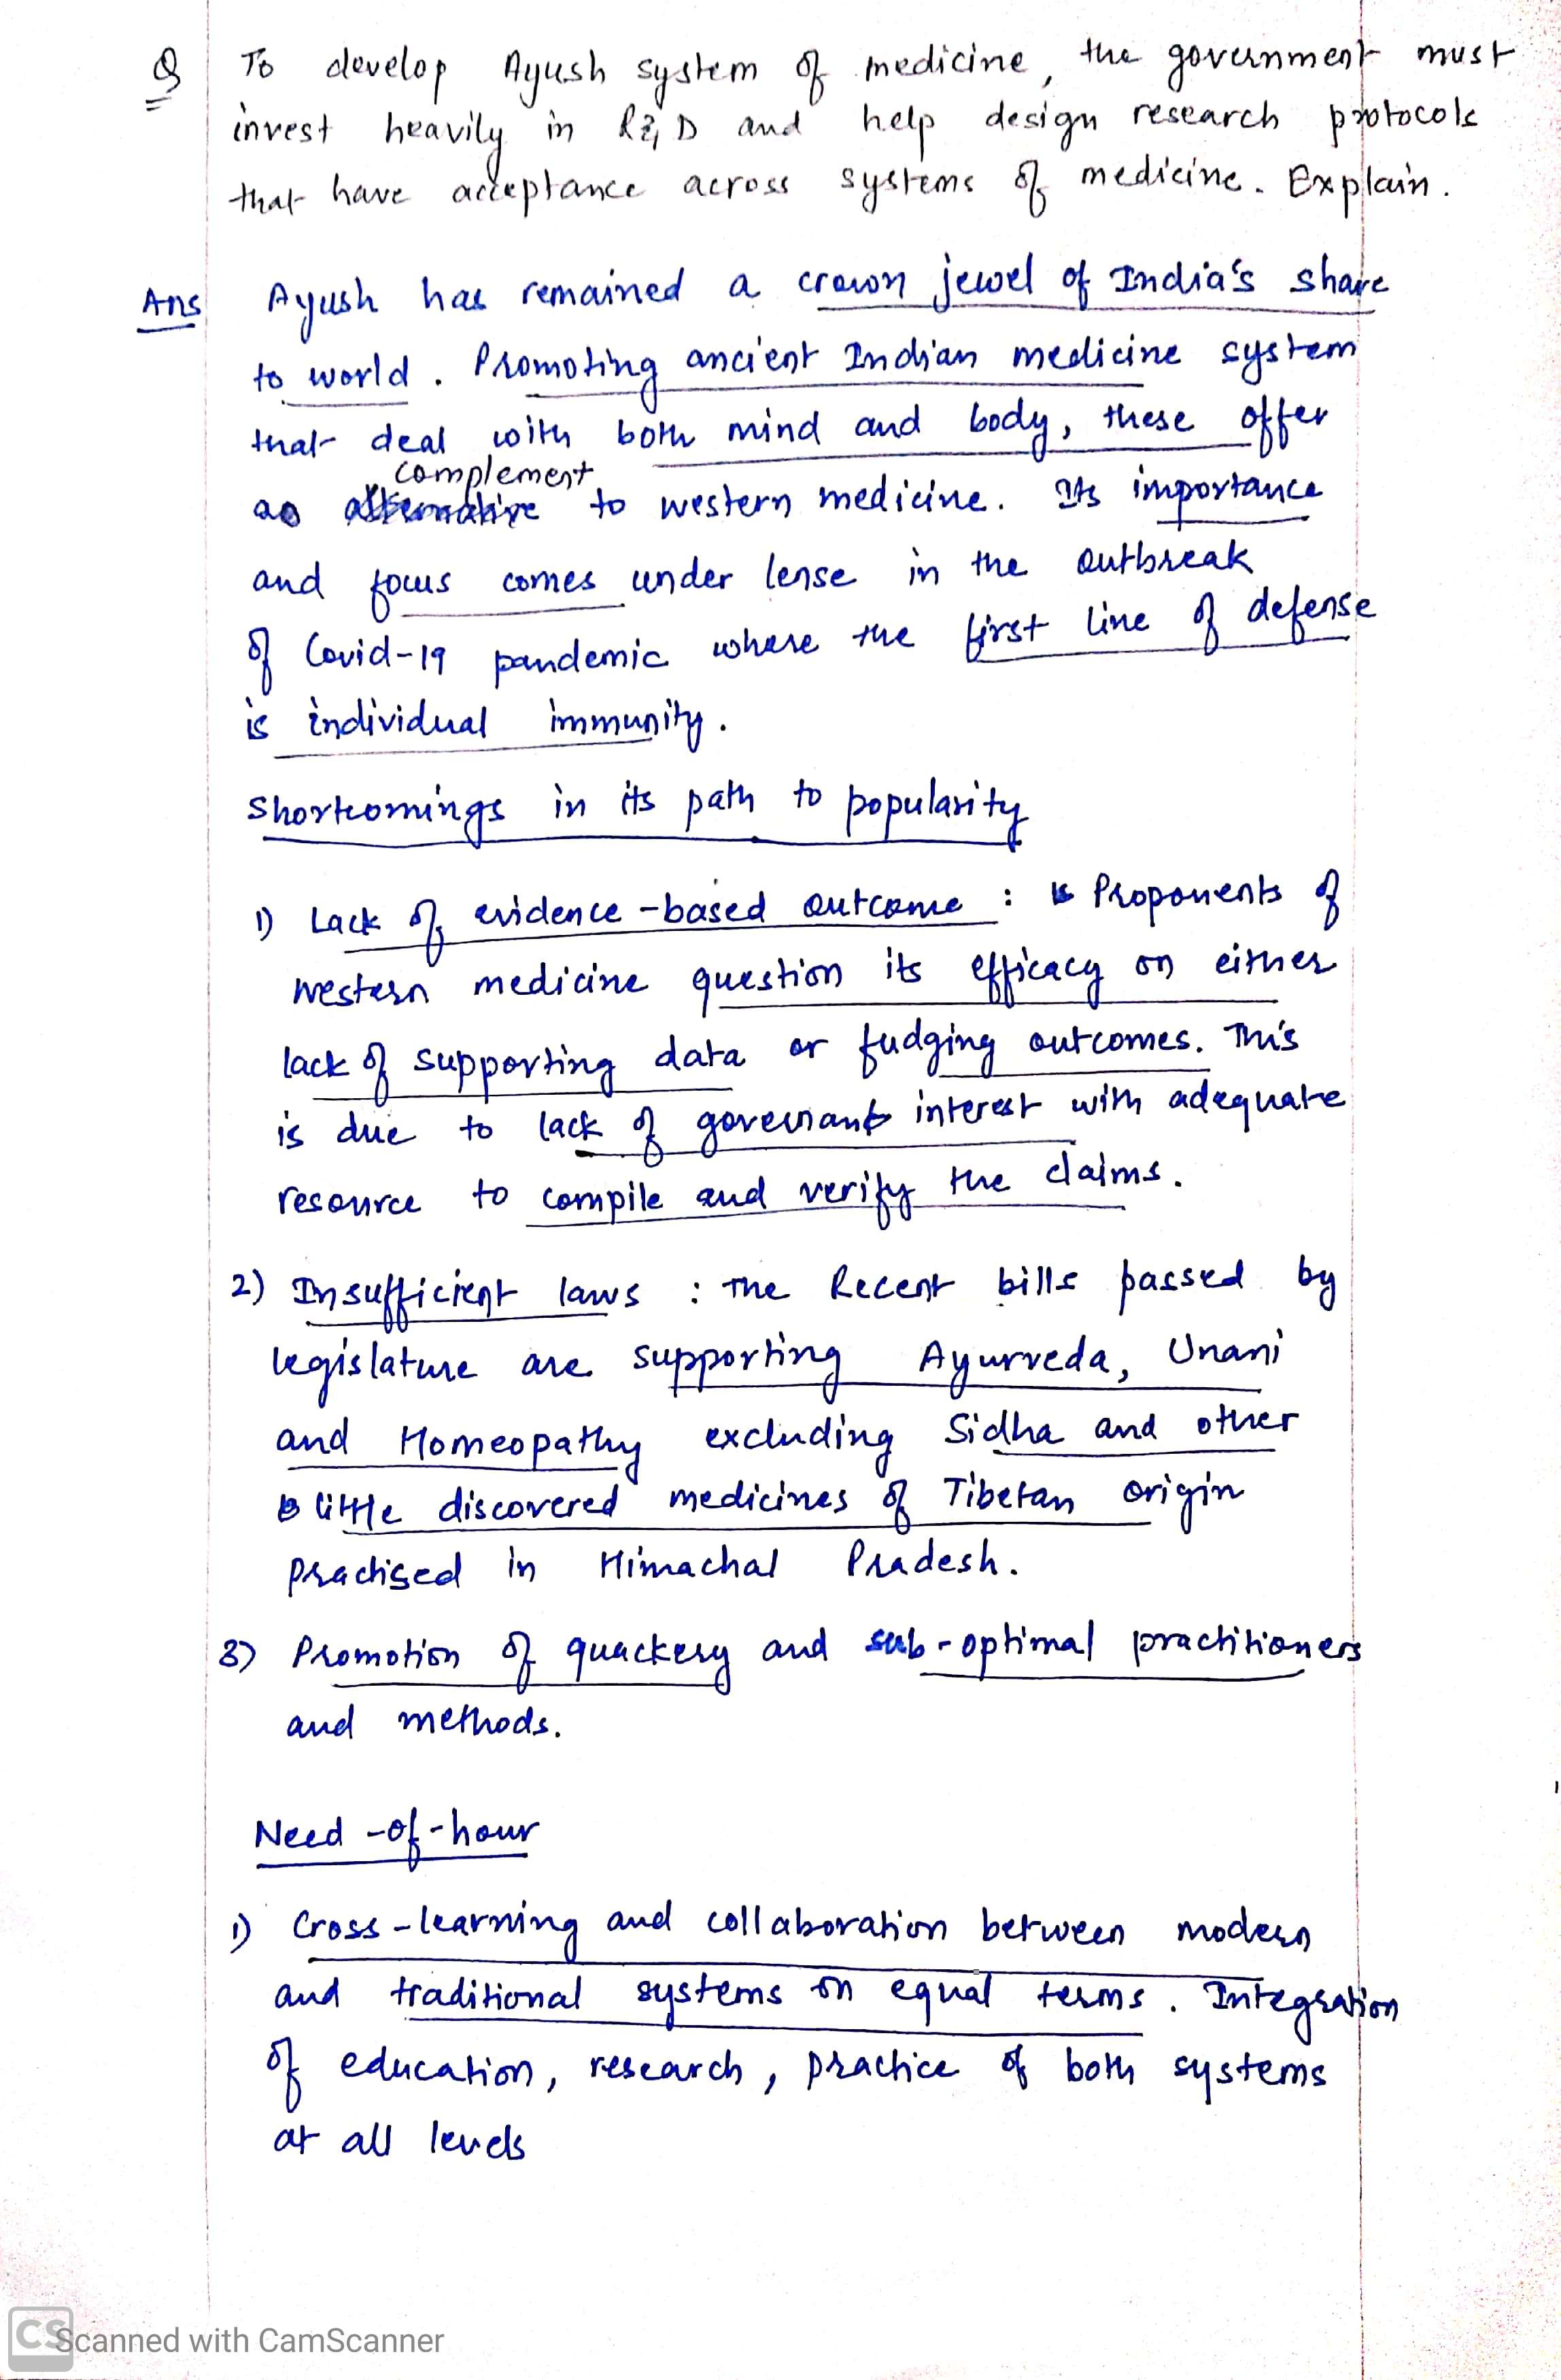 Q To develop Ayush system of medicine, the government must
invest heavily in R&D and help design research protocols
that have acceptance across systems of medicine. Explain.
Ans Ayush has remained a crown jewel of India's share
to world. Promoting ancient Indian medicine system
that deal with both mind and body, these offer
complement
as alternative to western medicine. Its importance
and focus comes under lense in the outbreak
of Covid-19 pandemic where the first line of defense
is individual immunity.
Shortcomings in its path to popularity
1) Lack of evidence-based outcome : Proponents of
western medicine question its efficacy on either
lack of supporting data or fudging outcomes. This
is due to lack of interest with adequate
resource to compile and verify the claims.
2) Insufficient laws : The Recent bills passed by
legislature are supporting Ayurveda, Unani
and Homeopathy excluding Sidha and other
little discovered medicines of Tibetan origin
practised in Himachal Pradesh.
3) Promotion of quackery and sub-optimal practitioners
and methods.
Need-of-hour
1) Cross-learning and collaboration between modern
and traditional systems on equal terms. Integration
of education, research, practice of both systems
at all levels
CS Scanned with CamScanner